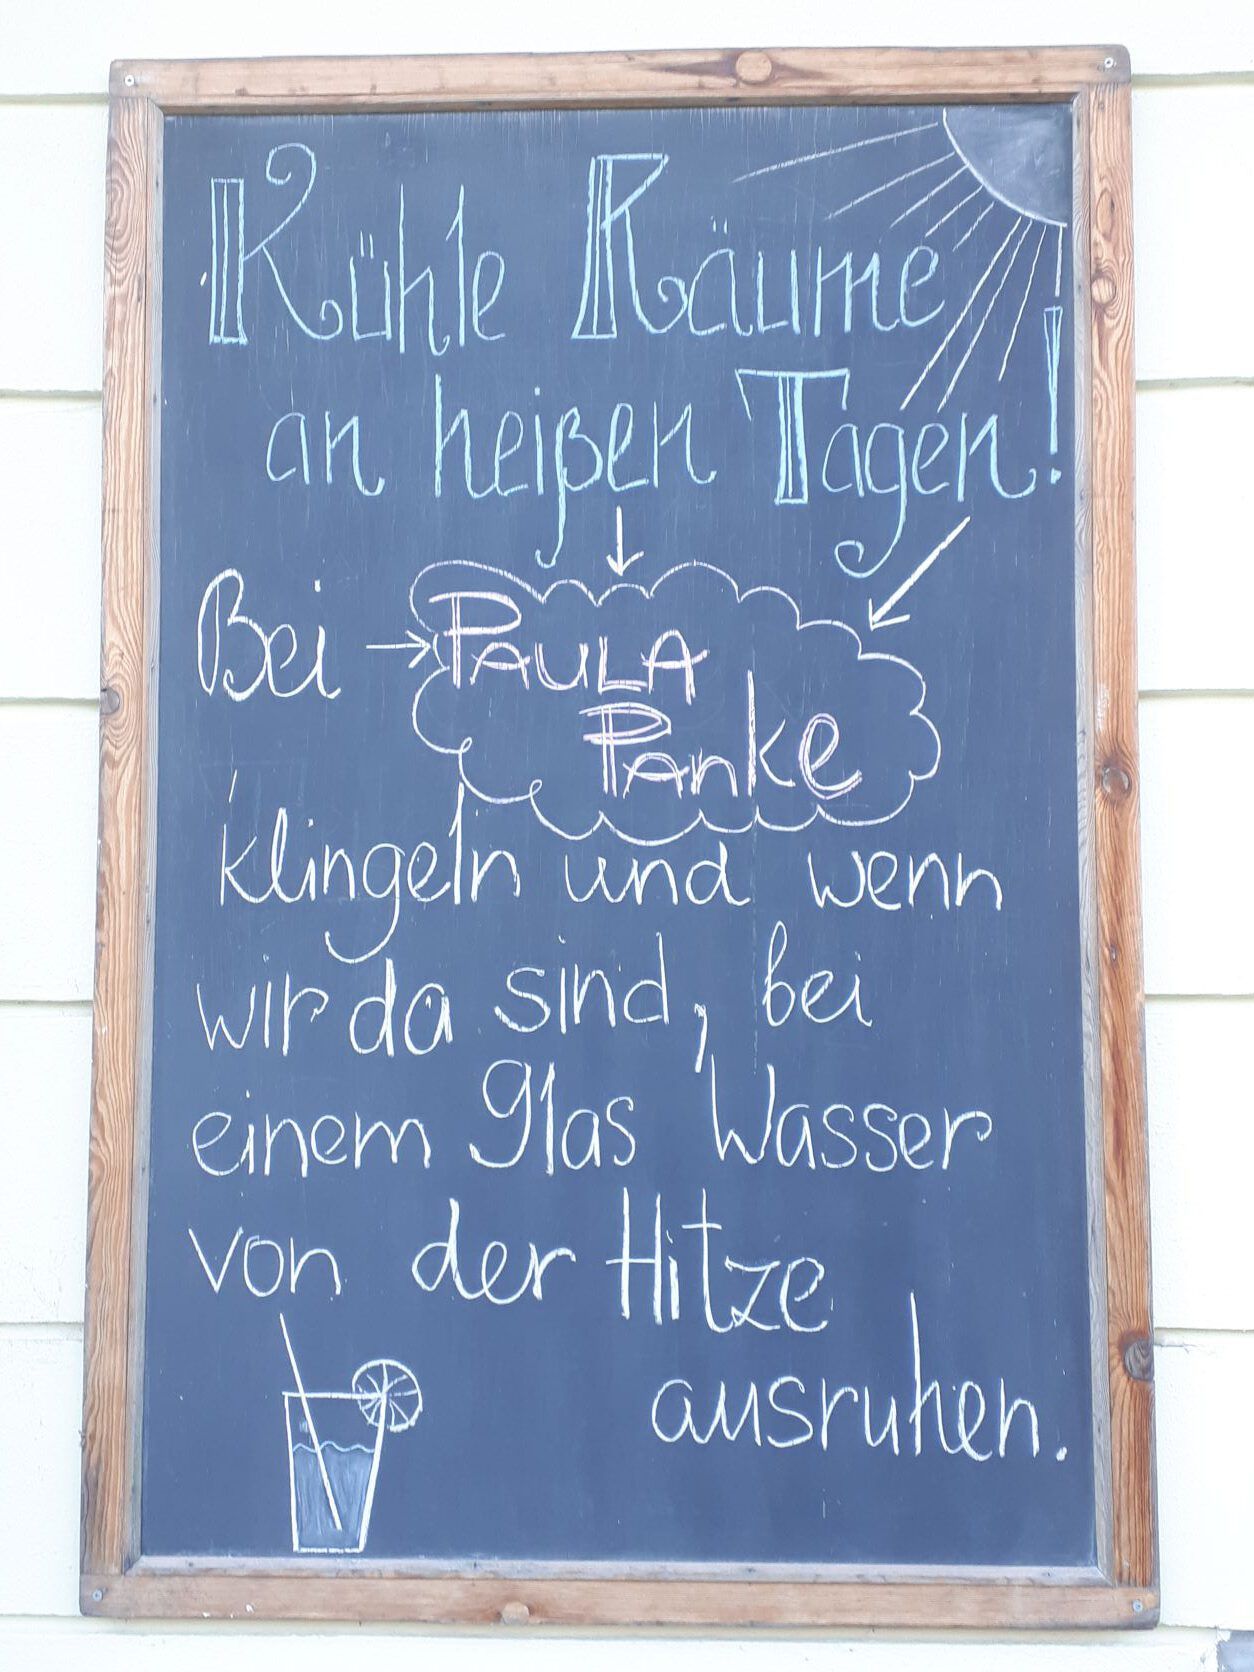 Kühle Räume
an heißen Tagen!
Bei PAULA
Panke
klingeln und wenn
wir da sind, bei
einem Glas Wasser
von der Hitze
ausruhen.